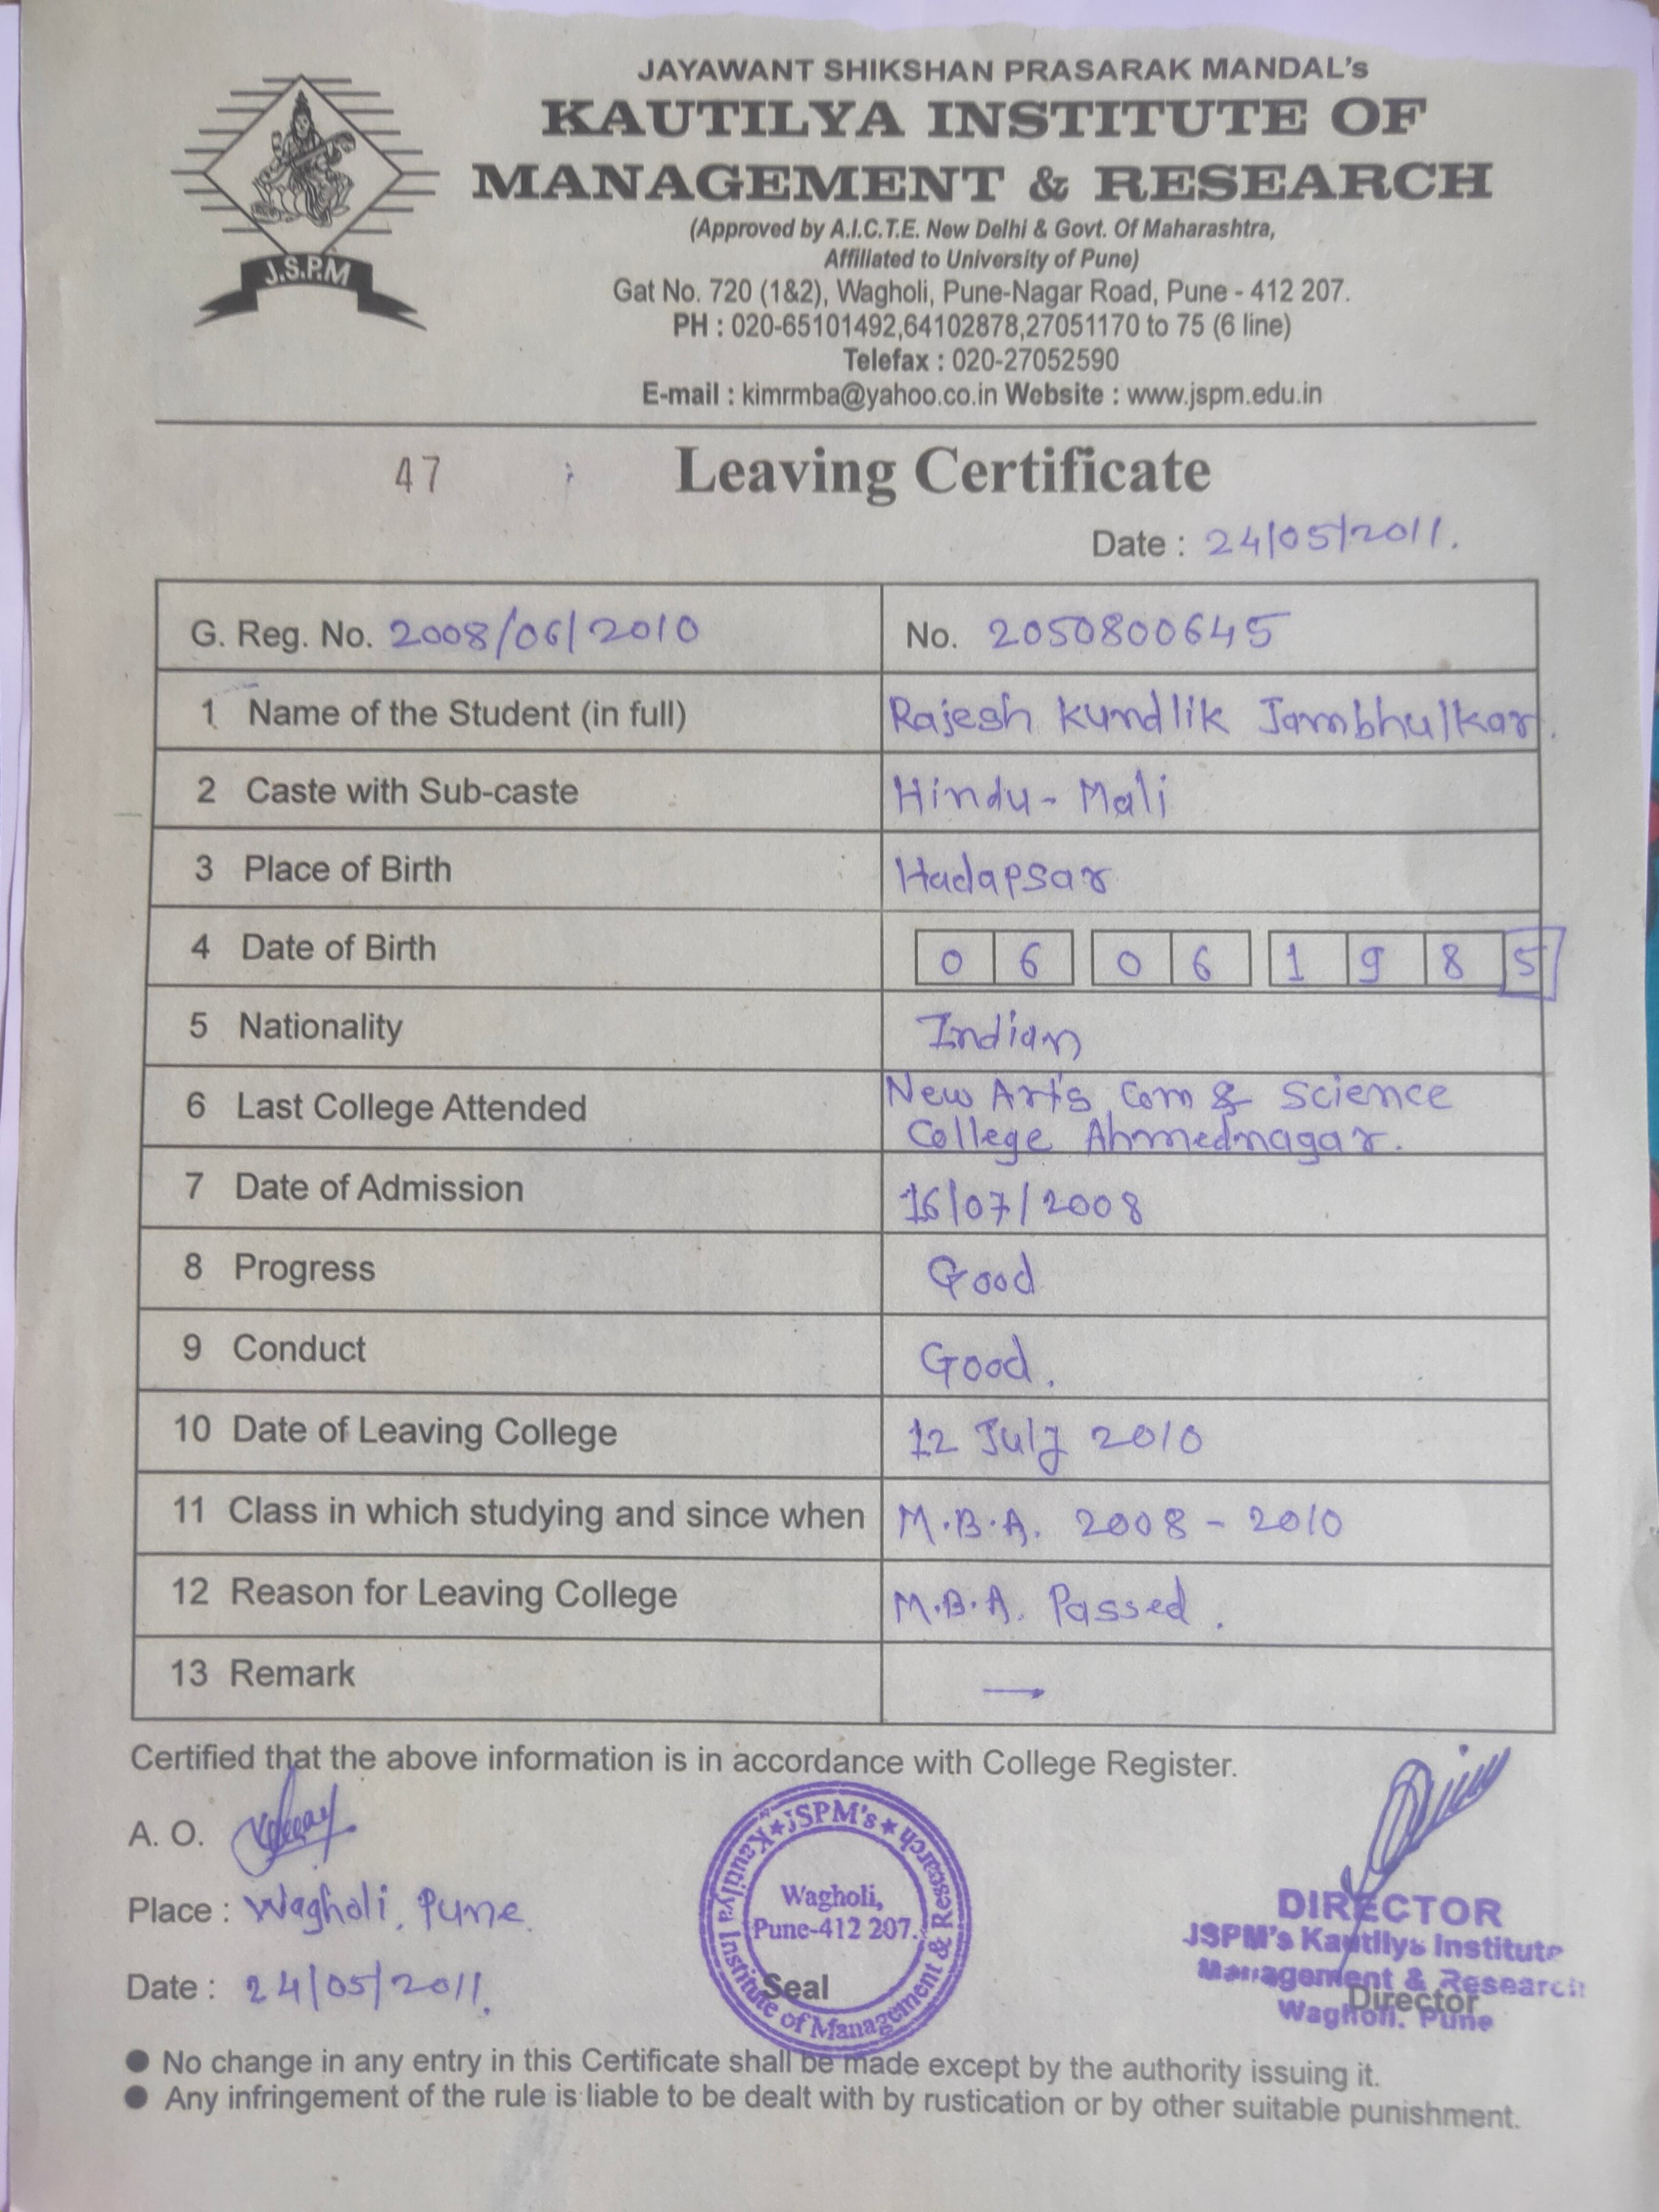 JAYAWANT SHIKSHAN PRASARAK MANDAL's
KAUTILYA INSTITUTE OF
MANAGEMENT & RESEARCH
(Approved by A.I.C.T.E. New Delhi & Govt. Of Maharashtra,
Affiliated to University of Pune)
J.S.P.M
Gat No. 720 (1&2), Wagholi, Pune-Nagar Road, Pune - 412 207.
PH : 020-65101492,64102878,27051170 to 75 (6 line)
Telefax : 020-27052590
E-mail : kimrmba@yahoo.co.in Website : www.jspm.edu.in
47 Leaving Certificate
Date : 24/05/2011.
G. Reg. No. 2008/06/2010 No. 2050800645
1 Name of the Student (in full) Rajesh Kundlik Jambhulkar.
2 Caste with Sub-caste Hindu - Mali
3 Place of Birth Hadapsar
4 Date of Birth 0 6 0 6 1 9 8 5
5 Nationality Indian
6 Last College Attended New Art's, Com & Science
College Ahmednagar.
7 Date of Admission 16/07/2008
8 Progress Good
9 Conduct Good.
10 Date of Leaving College 12 July 2010
11 Class in which studying and since when M.B.A. 2008 - 2010
12 Reason for Leaving College M.B.A. Passed.
13 Remark —
Certified that the above information is in accordance with College Register.
A. O.
Place : Wagholi, Pune.
Date : 24/05/2011.
★ JSPM's ★ Kautilya Institute of Management & Research
Wagholi,
Pune-412 207.
Seal
DIRECTOR
JSPM's Kautilys Institute
Management & Research
Wagholi. Pune
Director
● No change in any entry in this Certificate shall be made except by the authority issuing it.
● Any infringement of the rule is liable to be dealt with by rustication or by other suitable punishment.